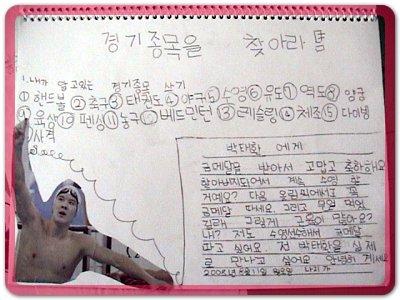 경기종목을 찾아라
1. 내가 알고있는 경기종목 쓰기
① 핸드볼 ② 축구 ③ 태권도 ④ 야구 ⑤ 수영 ⑥ 유도 ⑦ 역도 ⑧ 양궁
⑨ 육상 ⑩ 펜싱 ⑪ 농구 ⑫ 베드민턴 ⑬ 레슬링 ⑭ 체조 ⑮ 다이빙
사격
박태환 에게
금메달을 받아서 고맙고 축하해요
할아버지되어서 계속 수영 할
거예요? 다음 올림픽에서도 꼭
금메달 따세요. 그리고 무얼 먹었
길래 그렇게 근육이 많아요?
네? 저도 수영선수해서 금메달
따고 싶어요. 전 박태환을 실제
로 만나고 싶어요 안녕히 계세요
2008년 8월 11일 월요일